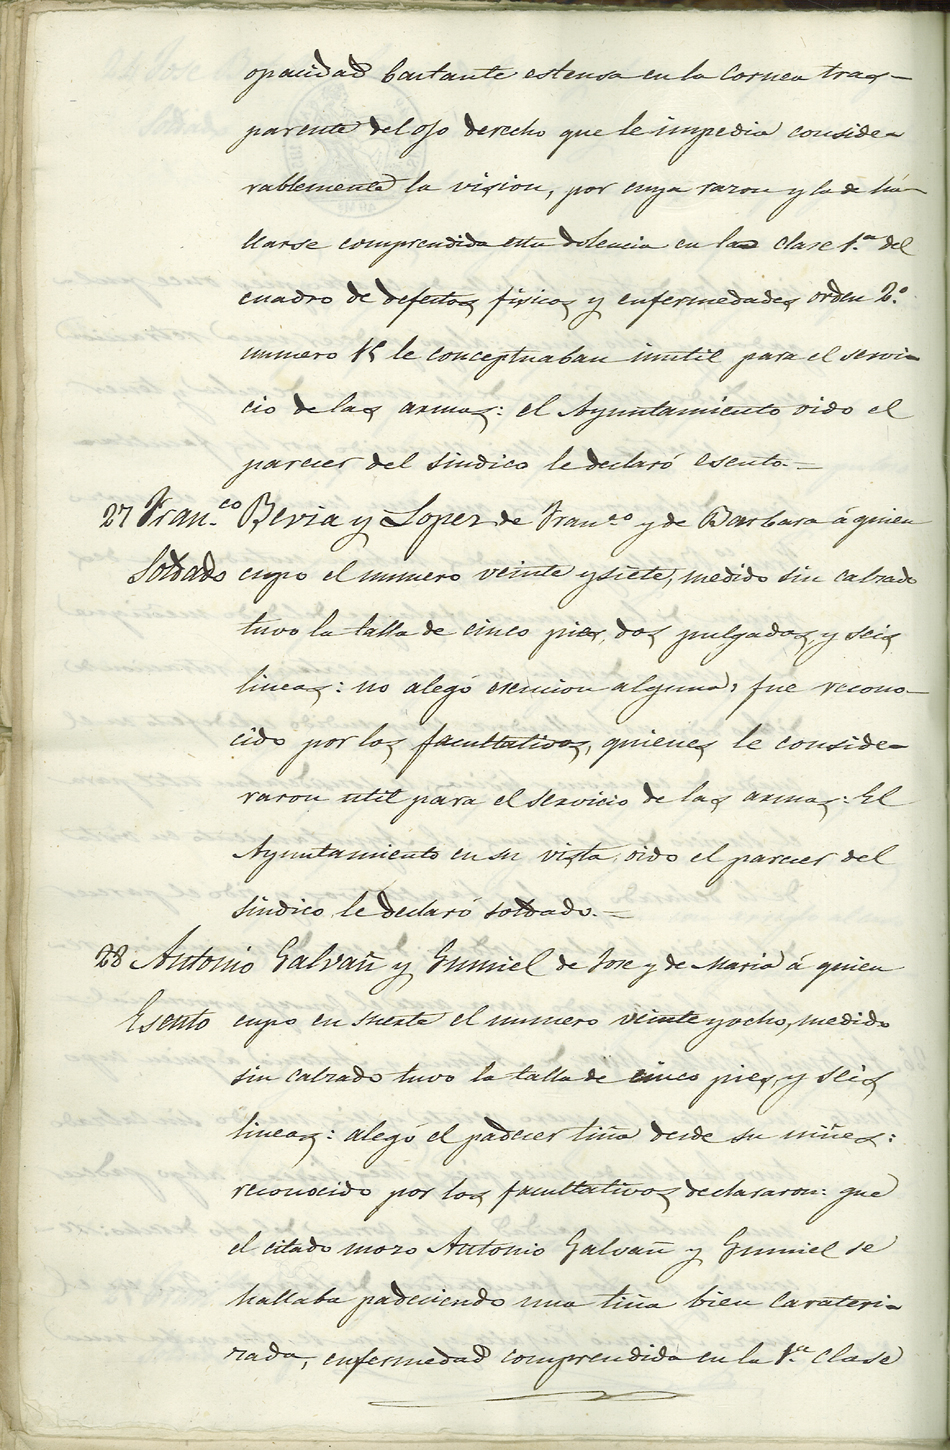 opacidad bastante estensa en la Cornea tras-
parente del ojo derecho que le impedia conside-
rablemente la vision, por cuya razon y la de ha-
llarse comprendida esta dolencia en la clase 1.ª del
cuadro de defectos fisicos y enfermedades orden 2.º
numero le conceptuaban inutil para el servi-
cio de las armas: el Ayuntamiento oido el
parecer del sindico le declaró esento.=
27 Fran.co Bevia y Lopez de Fran.co y de Barbara á quien
Soldado cupo el numero veinte y siete, medido sin calzado
tuvo la talla de cinco pies, dos pulgadas, y seis
lineas: no alegó esencion alguna; fue recono-
cido por los facultativos, quienes le conside-
raron util para el servicio de las armas: El
Ayuntamiento en su vista, oido el parecer del
sindico le declaró soldado.=
28 Antonio Galvañ y Gumiel de Jose y de Maria á quien
Esento cupo en suerte el numero veinte y ocho, medido
sin calzado tuvo la talla de cinco pies, y seis
lineas: alegó el padecer tiña desde su niñes:
reconocido por los facultativos declararon: que
el citado mozo Antonio Galvañ y Gumiel se
hallaba padeciendo una tiña bien carateri-
zada, enfermedad comprendida en la 1.ª clase